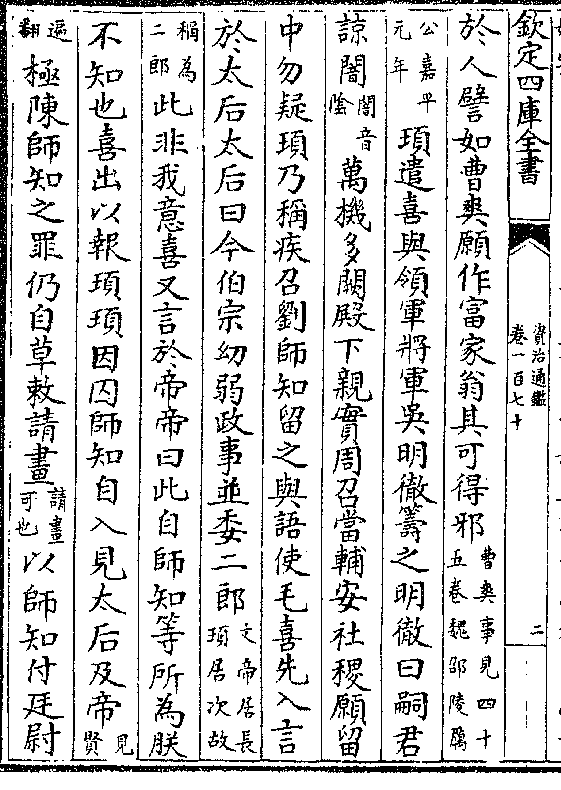 欽定四庫全書
資治通鑑
卷一百七十
二
於人譬如曹爽願作富家翁其可得邪曹爽事見四十五卷魏邵陵厲
公嘉平元年頊遣喜與領軍將軍吳明徹籌之明徹曰嗣君
諒闇闇音陰萬機多闕殿下親實周召當輔安社稷願留
中勿疑頊乃稱疾召劉師知留之與語使毛喜先入言
於太后太后曰今伯宗幼弱政事並委二郎文帝居長頊居次故
稱為二郎此非我意喜又言於帝帝曰此自師知等所為朕
不知也喜出以報頊頊因囚師知自入見太后及帝見賢
遍翻極陳師知之罪仍自草敕請畫請畫可也以師知付廷尉